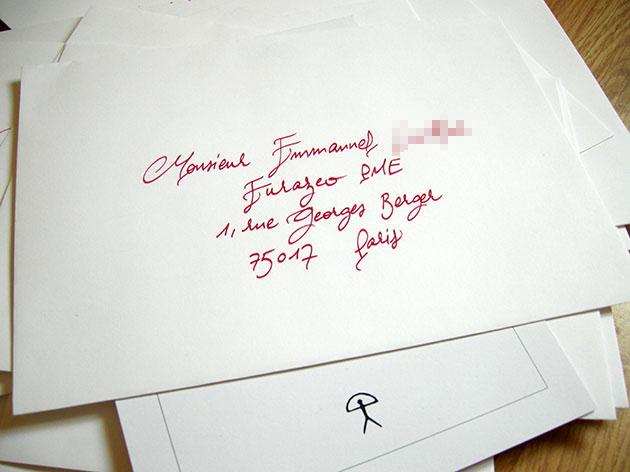 Monsieur Emmanuel
Eurazeo PME
1, rue Georges Berger
75017 Paris